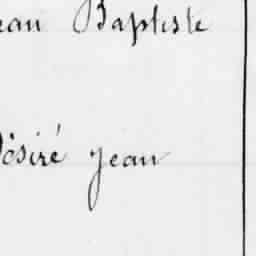 ean Baptiste
Désiré Jean